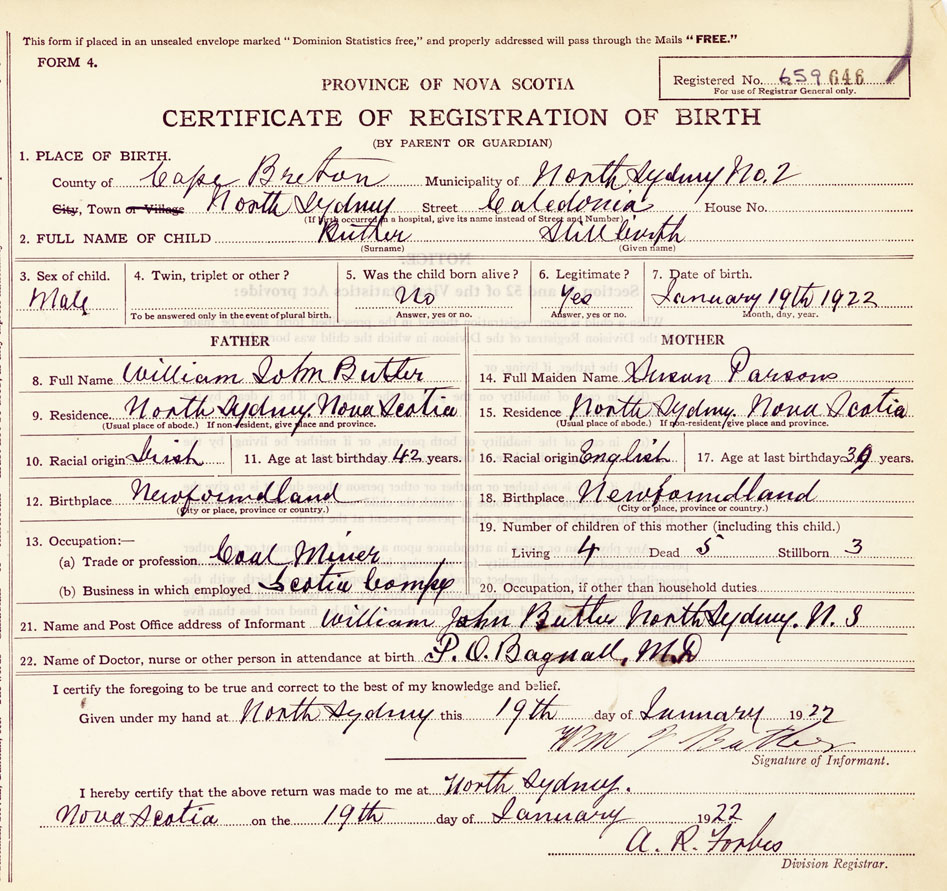 This form if placed in an unsealed envelope marked "Dominion Statistics free," and properly addressed will pass through the Mails "FREE."
FORM 4.
Registered No. 659 646
For use of Registrar General only.
PROVINCE OF NOVA SCOTIA
CERTIFICATE OF REGISTRATION OF BIRTH
(BY PARENT OR GUARDIAN)
1. PLACE OF BIRTH.
County of Cape Breton Municipality of North Sydney No. 2
City, Town or Village North Sydney Street Caledonia House No.
(If birth occurred in a hospital, give its name instead of Street and Number)
2. FULL NAME OF CHILD Butler Stillbirth
(Surname) (Given name)
3. Sex of child. 4. Twin, triplet or other? 5. Was the child born alive? 6. Legitimate? 7. Date of birth.
Male No Yes January 19th 1922
To be answered only in the event of plural birth. Answer, yes or no. Answer, yes or no. Month, day, year.
FATHER MOTHER
8. Full Name William John Butler 14. Full Maiden Name Susan Parsons
9. Residence. North Sydney. Nova Scotia 15. Residence North Sydney. Nova Scotia
(Usual place of abode.) If non-resident, give place and province. (Usual place of abode.) If non-resident give place and province.
10. Racial origin Irish 11. Age at last birthday 42 years. 16. Racial origin English 17. Age at last birthday 39 years.
12. Birthplace Newfoundland 18. Birthplace Newfoundland
(City or place, province or country.) (City or place, province or country.)
13. Occupation:— 19. Number of children of this mother (including this child.)
(a) Trade or profession Coal Miner Living 4 Dead 5 Stillborn 3
(b) Business in which employed Scotia Compy 20. Occupation, if other than household duties
21. Name and Post Office address of Informant William John Butler North Sydney. N. S
22. Name of Doctor, nurse or other person in attendance at birth P. O. Bagnall, M.D
I certify the foregoing to be true and correct to the best of my knowledge and belief.
Given under my hand at North Sydney this 19th day of January 1922
Wm J Butler
Signature of Informant.
I hereby certify that the above return was made to me at North Sydney.
Nova Scotia on the 19th day of January 1922
A. R. Forbes
Division Registrar.